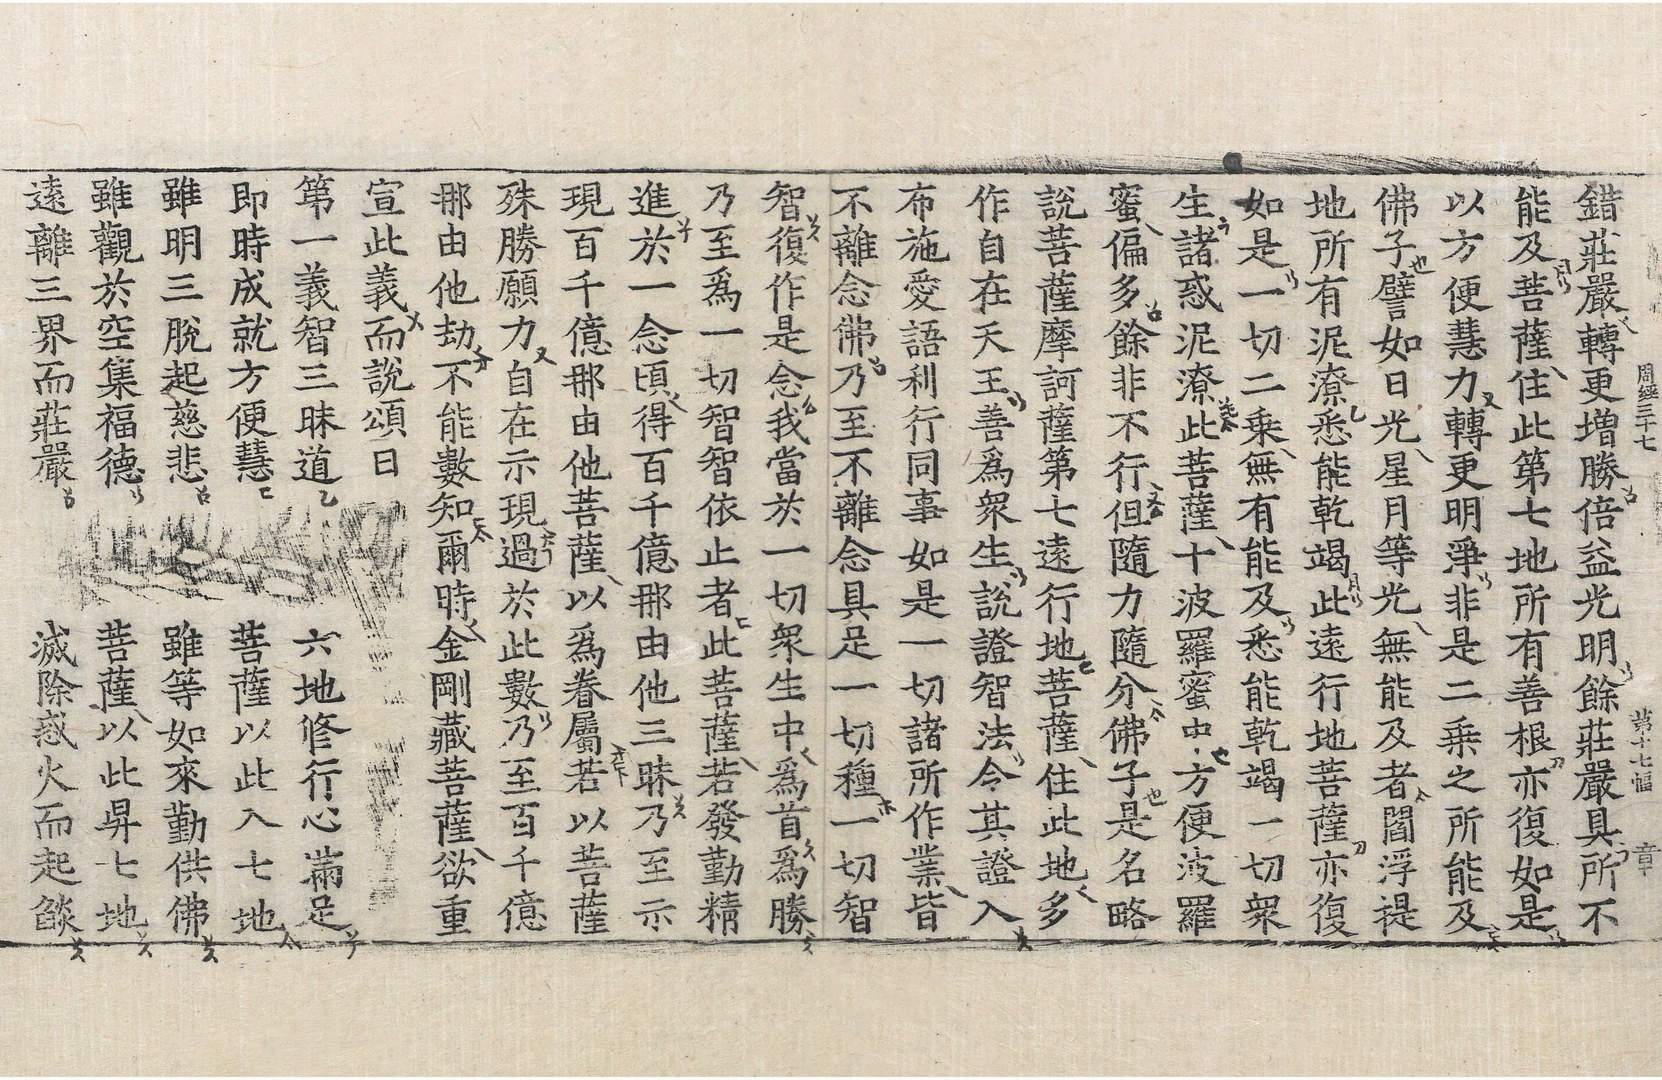 周經三十七 第十七幅 章
錯莊嚴轉更增勝倍益光明餘莊嚴具所不
能及菩薩住此第七地所有善根亦復如是
以方便慧力轉更明淨非是二乘之所能及
佛子譬如日光星月等光無能及者閻浮提
地所有泥潦悉能乾竭此遠行地菩薩亦復
如是一切二乘無有能及悉能乾竭一切衆
生諸惑泥潦此菩薩十波羅蜜中方便波羅
蜜偏多餘非不行但隨力隨分佛子是名略
說菩薩摩訶薩第七遠行地菩薩住此地多
作自在天王善爲衆生說證智法令其證入
布施愛語利行同事如是一切諸所作業皆
不離念佛乃至不離念具足一切種一切智
智復作是念我當於一切衆生中爲首爲勝
乃至爲一切智智依止者此菩薩若發勤精
進於一念頃得百千億那由他三昧乃至示
現百千億那由他菩薩以爲眷屬若以菩薩
殊勝願力自在示現過於此數乃至百千億
那由他劫不能數知爾時金剛藏菩薩欲重
宣此義而說頌曰
第一義智三昧道 六地修行心滿足
即時成就方便慧 菩薩以此入七地
雖明三脫起慈悲 雖等如來勤供佛
雖觀於空集福德 菩薩以此昇七地
遠離三界而莊嚴 滅除惑火而起燄